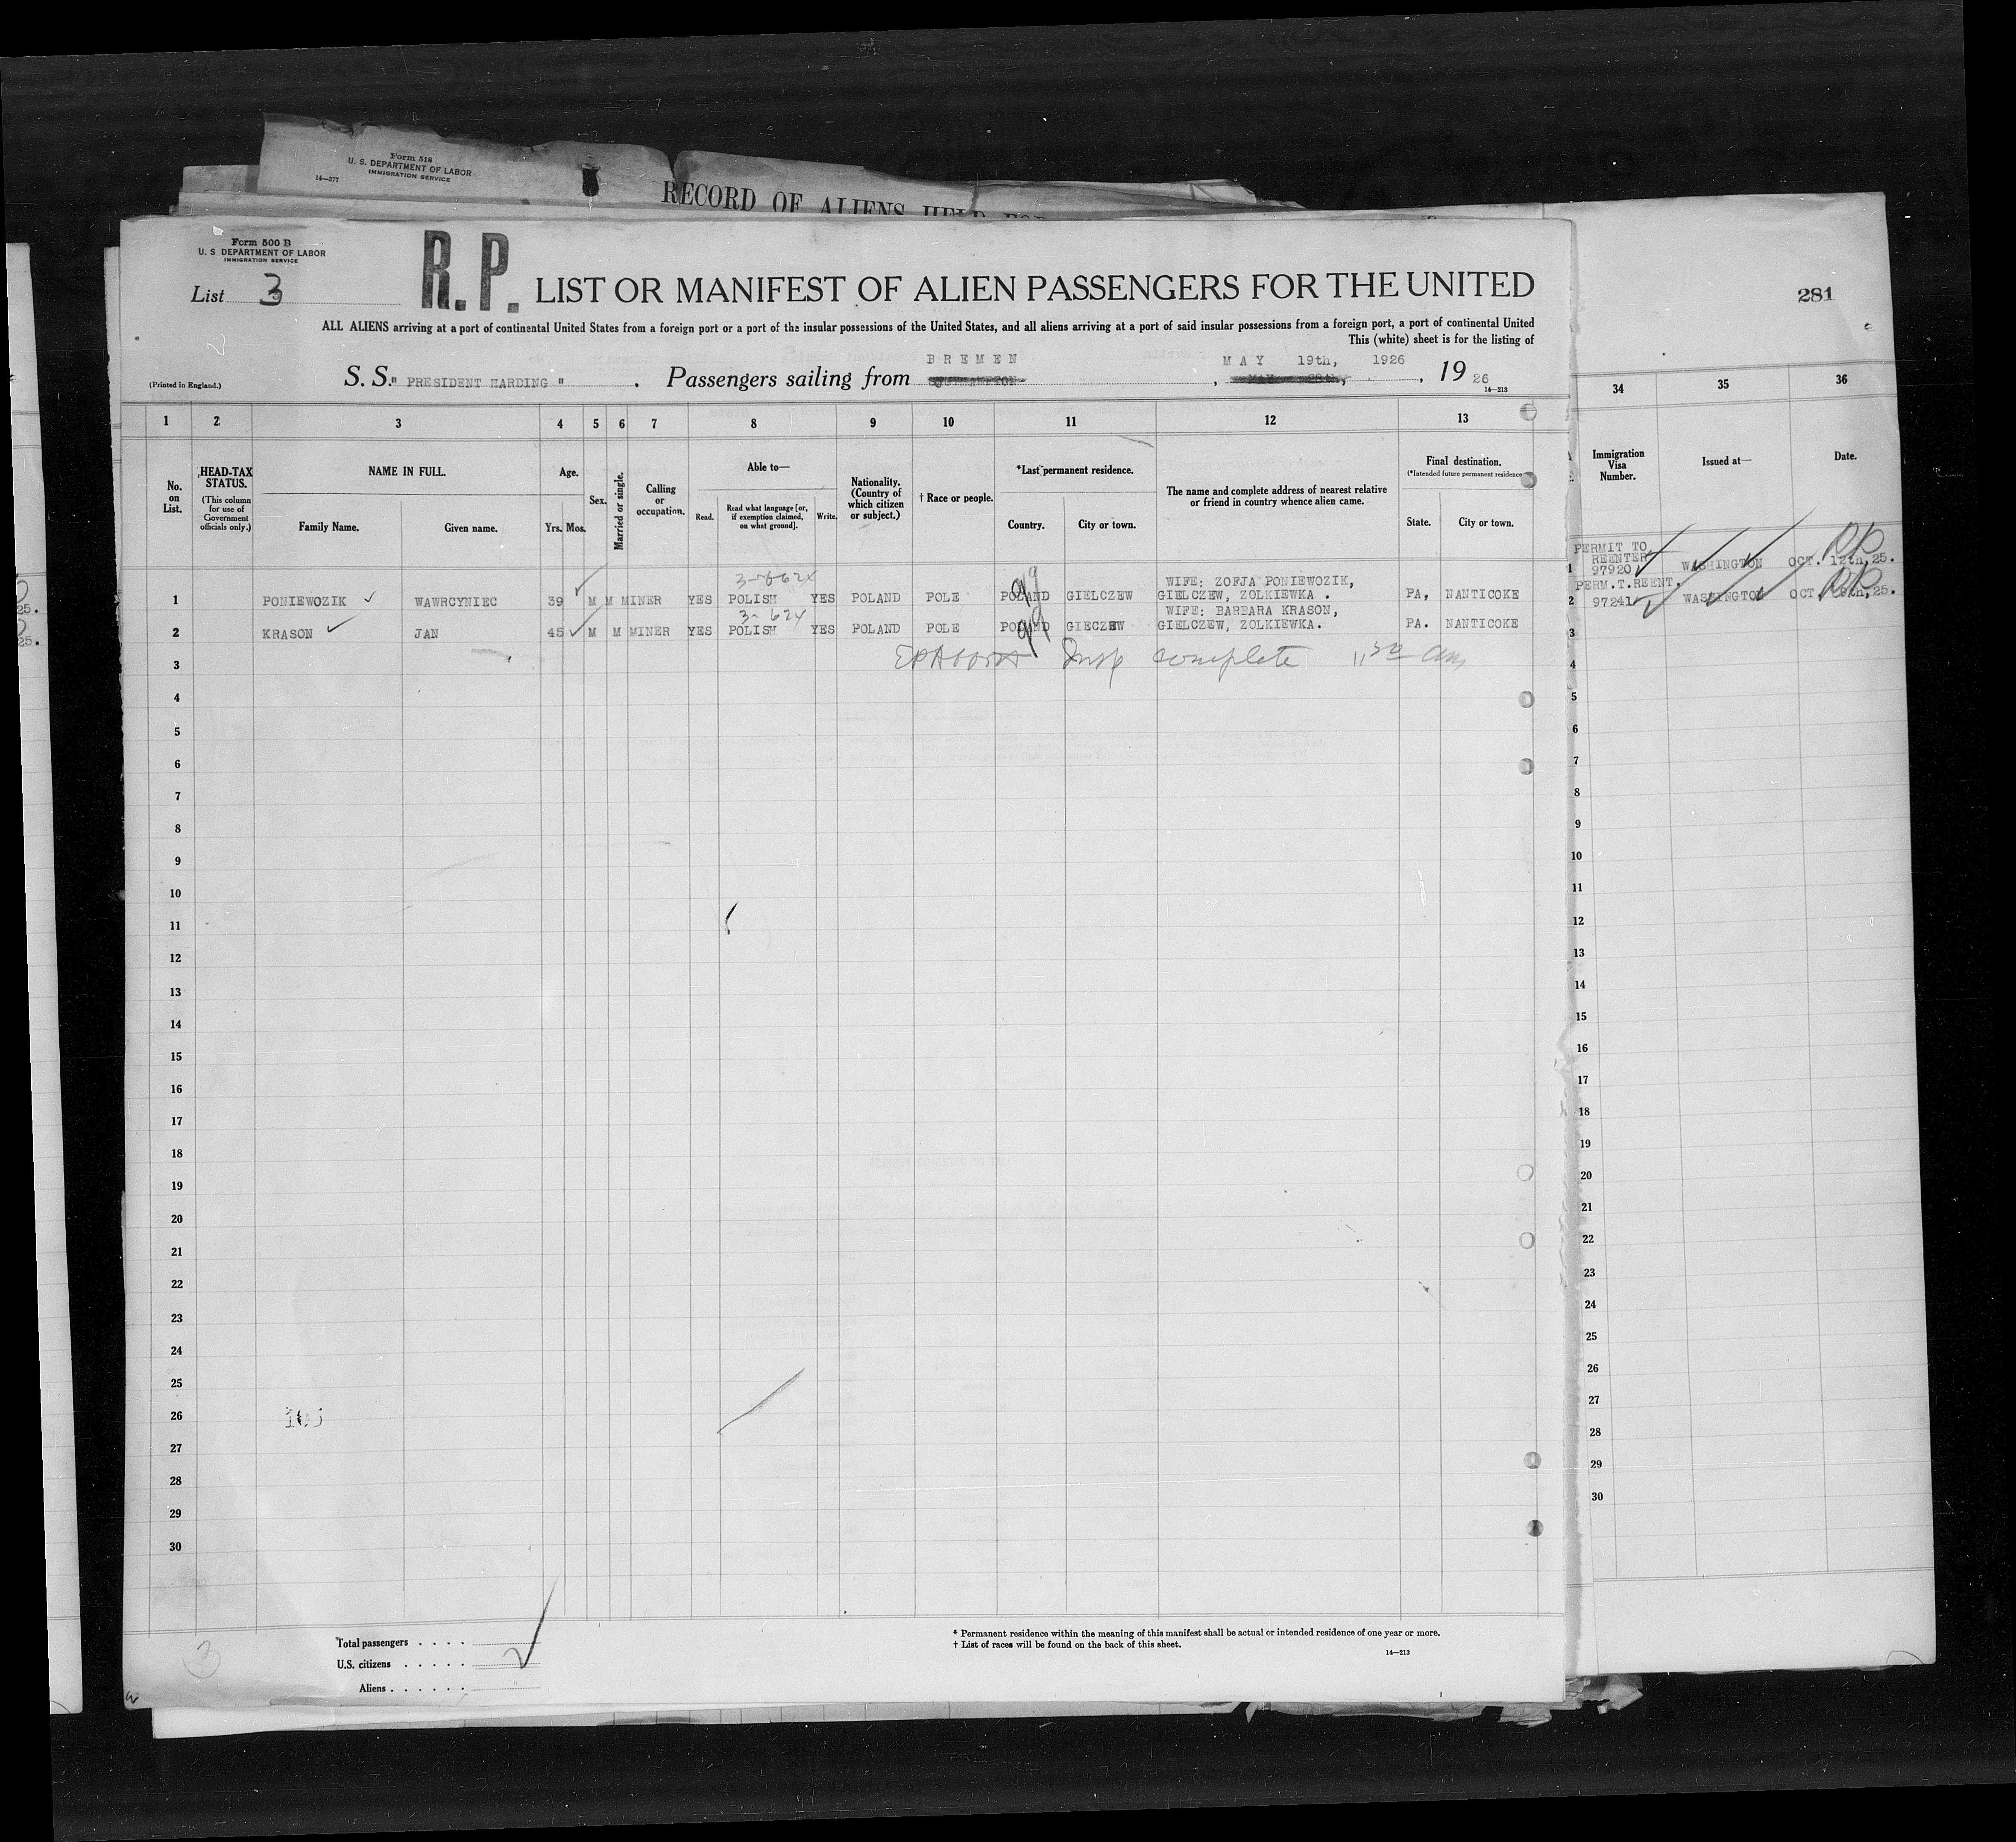 Form 518
U. S. DEPARTMENT OF LABOR
IMMIGRATION SERVICE
14—377
RECORD OF ALIENS HELD FOR
Form 500 B
U. S DEPARTMENT OF LABOR
IMMIGRATION SERVICE
List 3
R.P. LIST OR MANIFEST OF ALIEN PASSENGERS FOR THE UNITED
281
ALL ALIENS arriving at a port of continental United States from a foreign port or a port of the insular possessions of the United States, and all aliens arriving at a port of said insular possessions from a foreign port, a port of continental United
This (white) sheet is for the listing of
BREMEN MAY 19th, 1926
(Printed in England.) S. S. " PRESIDENT HARDING " . Passengers sailing from SOUTHAMPTON , MAY , 19 26
14—213
1 2 3 4 5 6 7 8 9 10 11 12 13 34 35 36
No. on List.
HEAD-TAX STATUS.
(This column for use of Government officials only.)
NAME IN FULL.
Family Name. Given name.
Age.
Yrs. Mos.
Sex.
Married or single.
Calling or occupation.
Able to—
Read. Read what language [or, if exemption claimed, on what ground]. Write.
Nationality. (Country of which citizen or subject.)
† Race or people.
*Last permanent residence.
Country. City or town.
The name and complete address of nearest relative or friend in country whence alien came.
Final destination.
(*Intended future permanent residence
State. City or town.
Immigration Visa Number.
Issued at—
Date.
WIFE: ZOFJA PONIEWOZIK,
1 PONIEWOZIK WAWRCYNIEC 39 M M MINER YES POLISH YES POLAND POLE POLAND GIELCZEW GIELCZEW, ZOLKIEWKA . PA, NANTICOKE
3- 624
WIFE: BARBARA KRASON,
2 KRASON JAN 45 M M MINER YES POLISH YES POLAND POLE POLAND GIECZEW GIELCZEW, ZOLKIEWKA. PA. NANTICOKE
Insp complete 11 30 am
PERMIT TO
REENTER
1 97920 WASHINGTON OCT. 12th, 25.
PERM.T.REENT.
2 97241 WASHINGTON OCT. 25.
RP
RP
25.
25.
3
4
5
6
7
8
9
10
11
12
13
14
15
16
17
18
19
20
21
22
23
24
25
26
27
28
29
30
3
4
5
6
7
8
9
10
11
12
13
14
15
16
17
18
19
20
21
22
23
24
25
26
27
28
29
30
Total passengers . . . .
U.S. citizens . . . . .
Aliens . . . . . .
3
* Permanent residence within the meaning of this manifest shall be actual or intended residence of one year or more.
† List of races will be found on the back of this sheet.
14—213